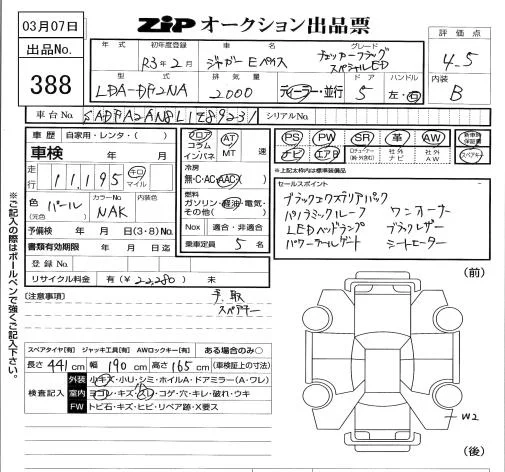 03月07日
ZIP オークション出品票
出品No.
388
年 式
初年度登録
車 名
グレード
評 価 点
R3年2月
ジャガー Eペイス
チェッカーフラッグ
スペシャルED
4.5
型 式
排 気 量
ド ア
ハンドル
内装
LDA-DF2NA
2000
ディーラー・並行
5
左・右
B
車 台 No.
シリアルNo.
車 歴
自家用・レンタ・( )
車検 年 月
走行
11,195
キロ
マイル
色 パール
(元色)
カラーNo.
NAK
内装色
予備検 年 月 日(3・8)No.
書類有効期限 年 月 日迄
登 録 No.
リサイクル料金 有(¥22,280) 未
フロア
コラム
インパネ
AT
MT
速
冷房
無・C・AC・AAC
燃料
ガソリン・軽油・電気・
その他( )
Nox 適合・非適合
乗車定員 5 名
PS
PW
SR
革
AW
新車時
保証書
ナビ
エアB
社 外
ナ ビ
社 外
A W
スペアキー
※上記太枠内は標準装備
セールスポイント
ブラックエクステリアパック
パノラミックルーフ ワンオーナー
LEDヘッドランプ ブラックレザー
パワーテールゲート シートヒーター
※ご記入の際はボールペンで強くご記入下さい。
[注意事項]
手、取
スペアキー
(前)
スペアタイヤ[有] ジャッキ工具[有] AWロックキー[有] ある場合のみ○
長さ 441 cm 幅 190 cm 高さ 165 cm (車検証上の寸法)
検査記入
外装 小キズ・小U・シミ・ホイルA・ドアミラー(A・ワレ)
室内 ヨゴレ・キズ・スレ・コゲ・穴・キレ・破れ・ウキ
FW トビ石・キズ・ヒビ・リペア跡・X要ス
W2
(後)